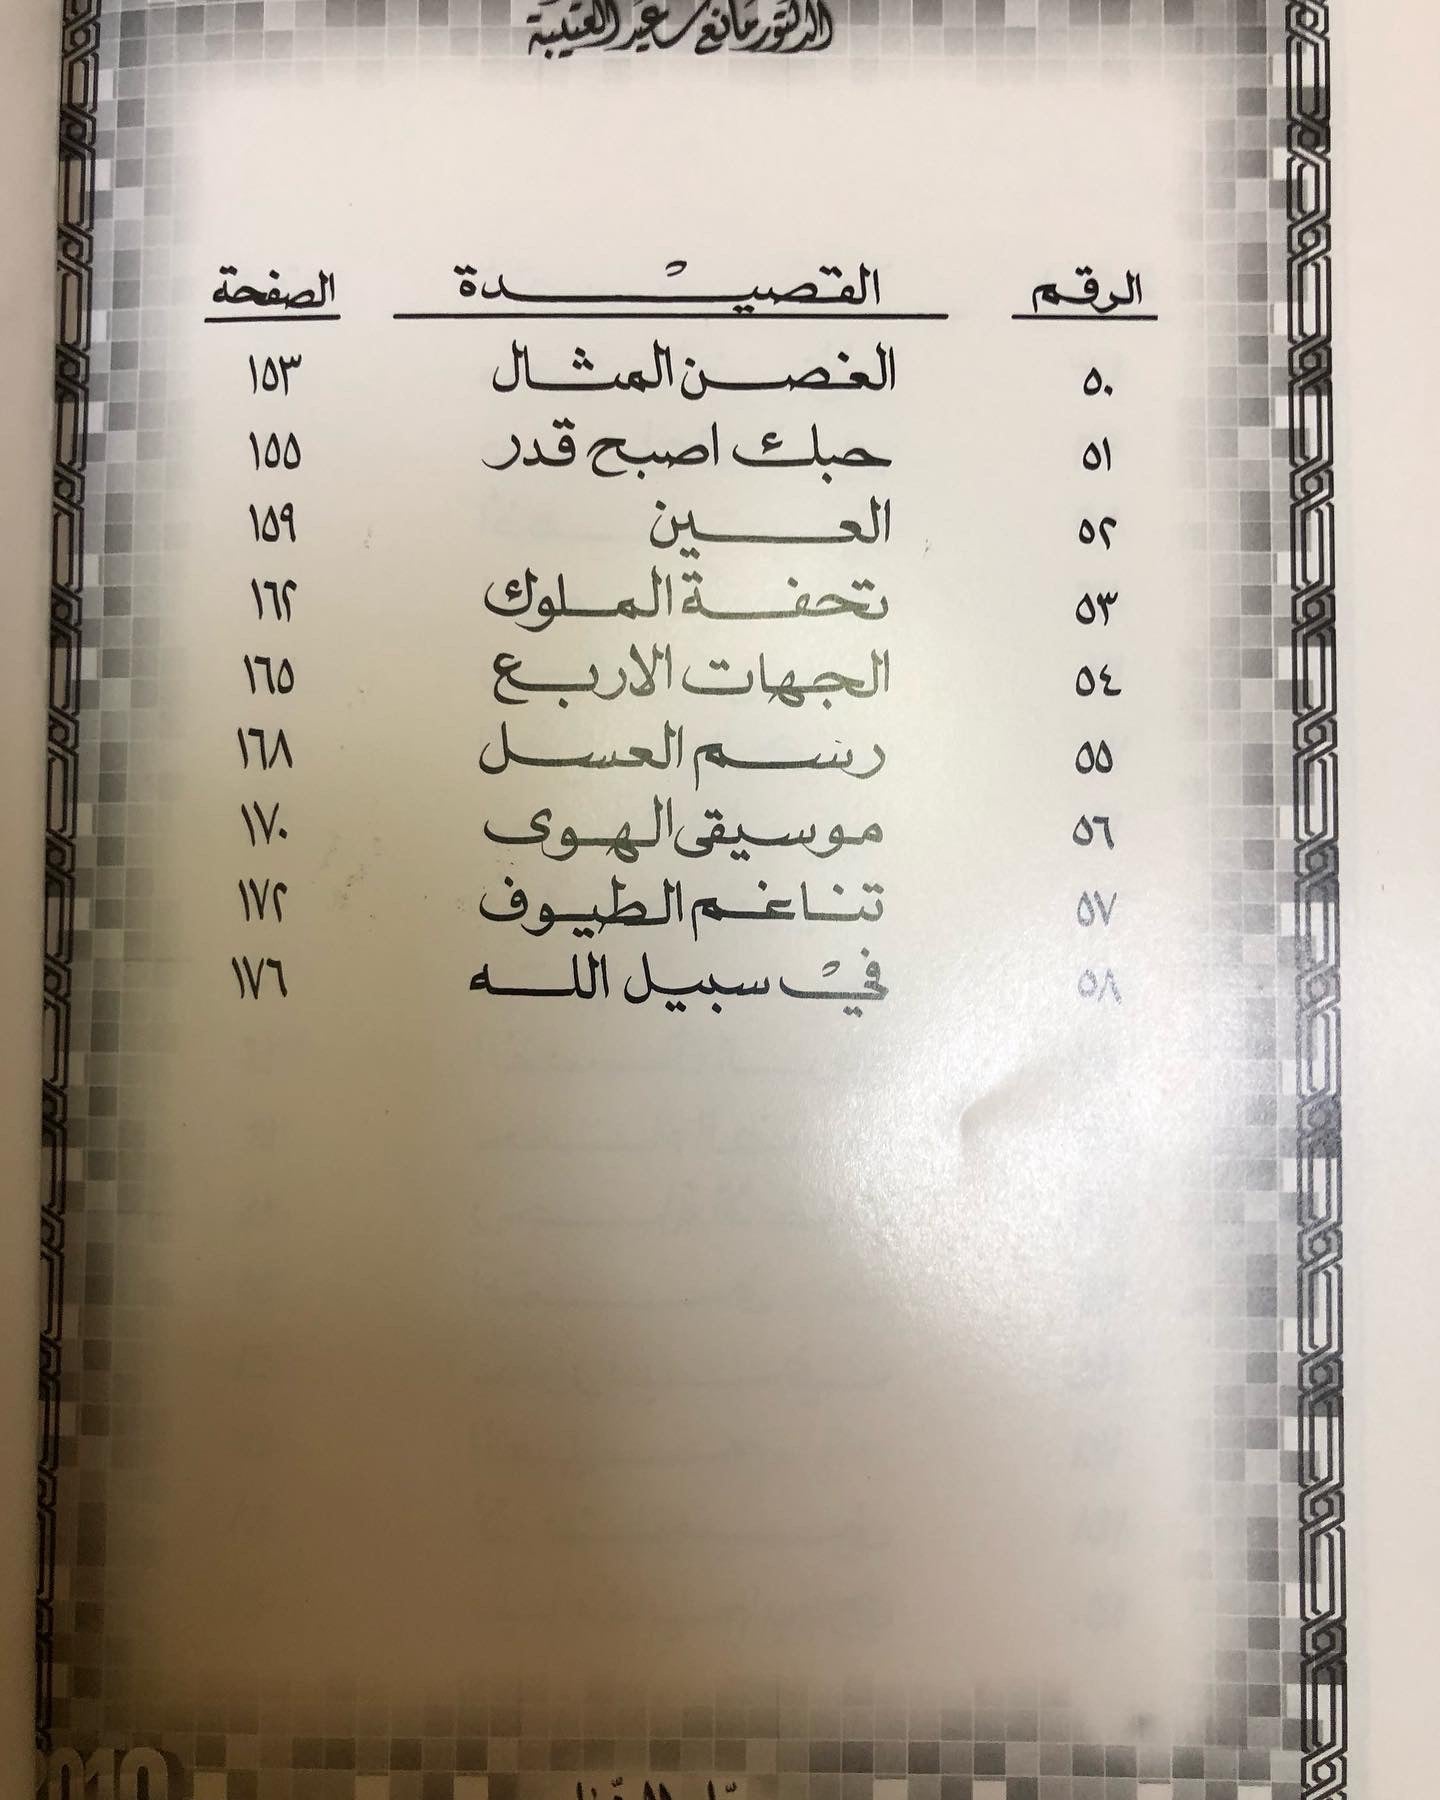 الدكتور مانع سعيد العتيبة
الرقم القصيدة الصفحة
٥٠ الغصن المثال ١٥٣
٥١ حبك اصبح قدر ١٥٥
٥٢ العين ١٥٩
٥٣ تحفة الملوك ١٦٢
٥٤ الجهات الاربع ١٦٥
٥٥ رسم العسل ١٦٨
٥٦ موسيقى الهوى ١٧٠
٥٧ تناغم الطيوف ١٧٢
٥٨ في سبيل الله ١٧٦